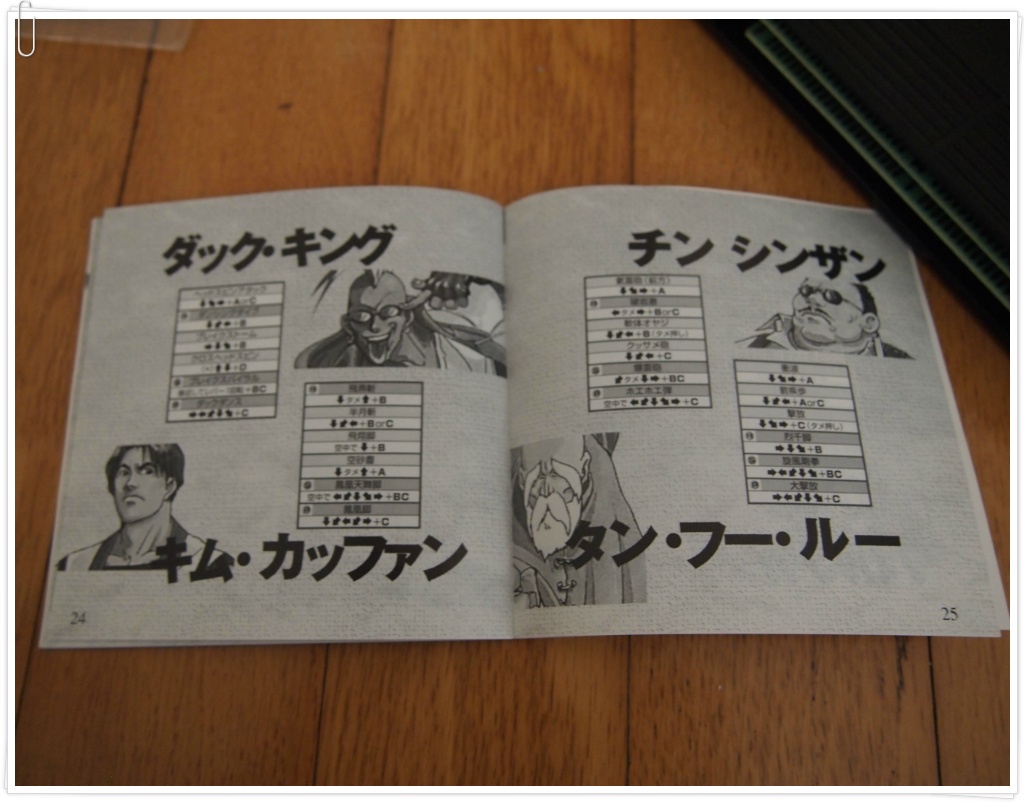 ダック・キング
ヘッドスピンアタック
⬇⬊➡+AorC
ダンシングダイブ
⬇⬋⬅+B
ブレイクストーム
➡⬇⬊+B
クロスヘッドスピン
⬆⬇+D
ブレイクスパイラル
+BC
ダックダンス
+C
飛燕斬
⬇タメ⬆+B
半月斬
⬇⬋⬅+BorC
飛翔脚
空中で⬇+B
空砂塵
⬇タメ⬆+A
鳳凰天舞脚
空中で⬅⬋⬇⬊➡+BC
鳳凰脚
⬇⬋⬅⬋➡+C
キム・カッファン
24
チン シンザン
氣雷砲(前方)
⬇⬊➡+A
破岩激
⬅タメ➡+BorC
軟体オヤジ
⬇⬋⬅+B(タメ押し)
クッサメ砲
⬇⬋⬅+C
爆雷砲
⬋タメ⬇➡+BC
ホエホエ弾
空中で⬅⬋⬇⬊➡+C
衝波
⬇⬊➡+A
箭疾歩
⬇⬋⬅+AorC
撃放
⬇⬊➡+C(タメ押し)
烈千脚
➡⬇⬊+B
旋風剛拳
➡⬅⬋⬇⬊+BC
大撃放
➡⬅⬋⬇⬊+C
タン・フー・ルー
25